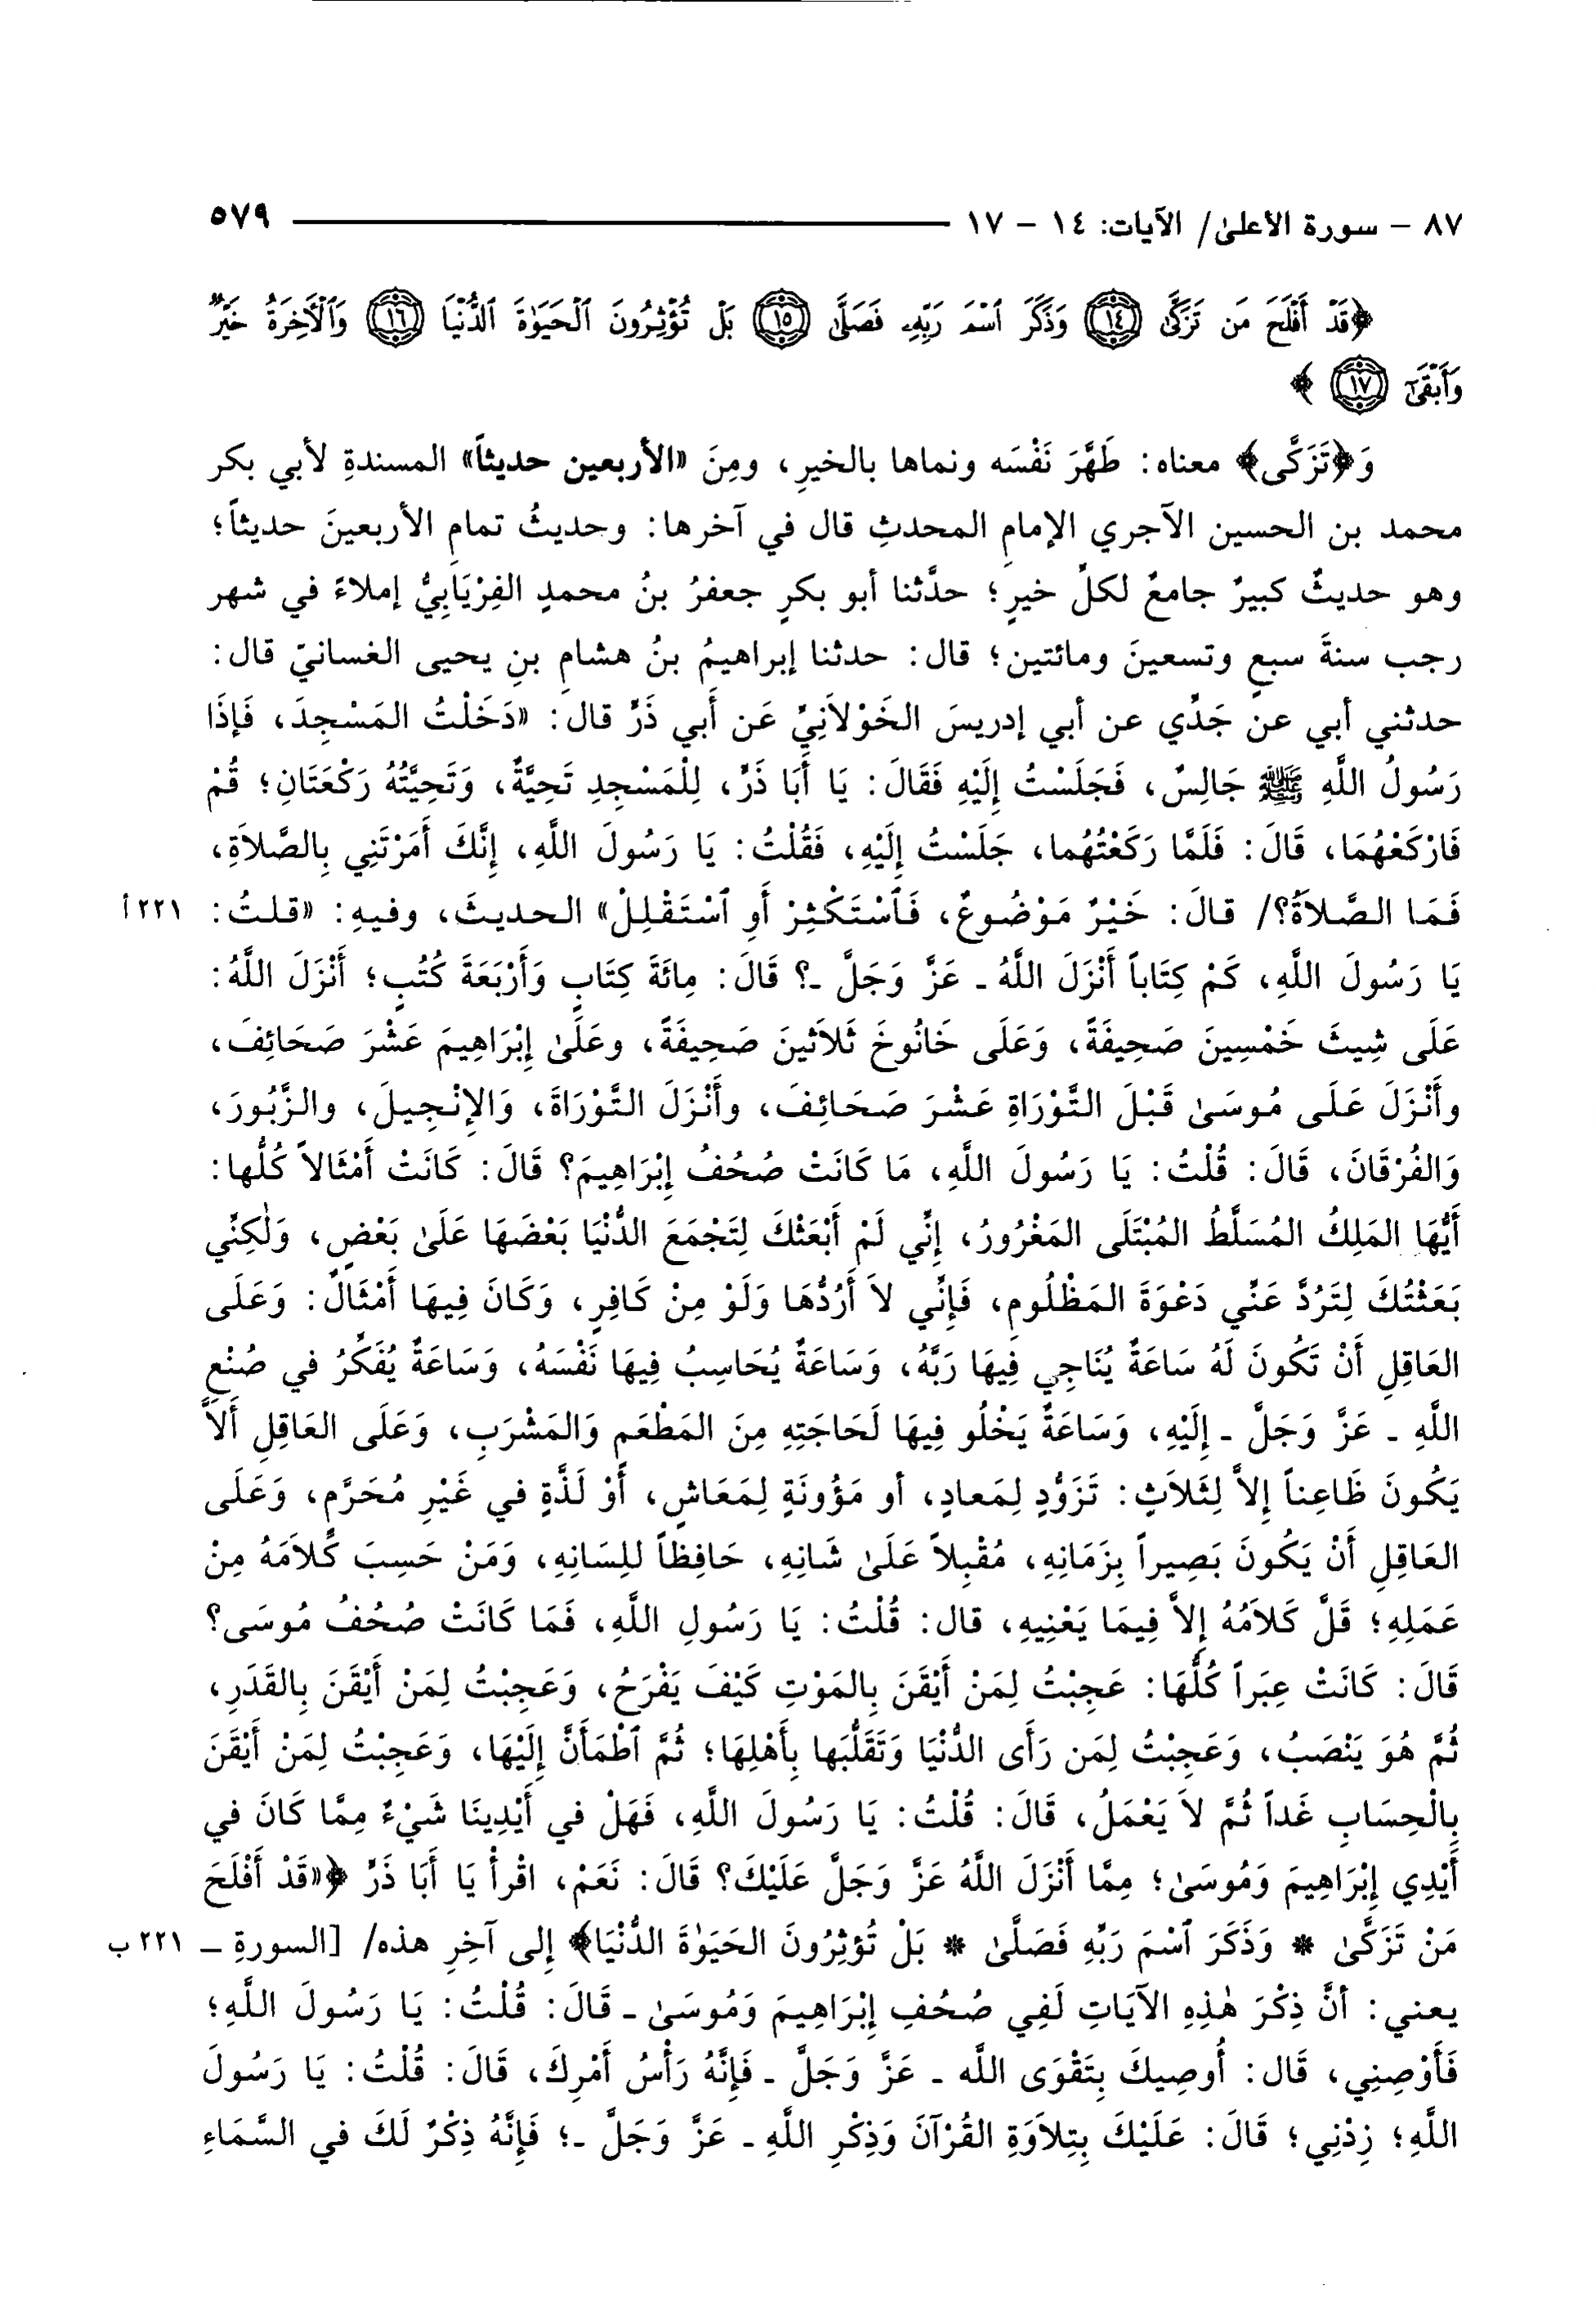 ٨٧ - سورة الأعلىٰ/ الآيات: ١٤ - ١٧ ٥٧٩
﴿قَدْ أَفْلَحَ مَن تَزَكَّىٰ ١٤ وَذَكَرَ ٱسْمَ رَبِّهِۦ فَصَلَّىٰ ١٥ بَلْ تُؤْثِرُونَ ٱلْحَيَوٰةَ ٱلدُّنْيَا ١٦ وَٱلْأَخِرَةُ خَيْرٌ
وَأَبْقَىٰٓ ١٧ ﴾
وَ﴿تَزَكَّى﴾ معناه: طَهَّرَ نَفْسَه ونماها بالخيرِ، ومِنَ «الأربعين حديثاً» المسندةِ لأبي بكر
محمد بن الحسين الآجري الإمامِ المحدثِ قال في آخرها: وحديثُ تمامِ الأربعينَ حديثاً؛
وهو حديثٌ كبيرٌ جامعٌ لكلِّ خيرٍ؛ حدَّثنا أبو بكرٍ جعفرُ بنُ محمدٍ الفِرْيَابِيُّ إملاءً في شهر
رجب سنةَ سبعٍ وتسعينَ ومائتين؛ قال: حدثنا إبراهيمُ بنُ هشامِ بنِ يحيى الغسانيّ قال:
حدثني أبي عن جَدِّي عن أبي إدريسَ الخَوْلاَنِيِّ عَن أَبي ذَرٍّ قال: «دَخَلْتُ المَسْجِدَ، فَإِذَا
رَسُولُ اللَّهِ ﷺ جَالِسٌ، فَجَلَسْتُ إِلَيْهِ فَقَالَ: يَا أَبَا ذَرٍّ، لِلْمَسْجِدِ تَحِيَّةٌ، وَتَحِيَّتُهُ رَكْعَتَانِ؛ قُمْ
فَارْكَعْهُمَا، قَالَ: فَلَمَّا رَكَعْتُهُما، جَلَسْتُ إِلَيْهِ، فَقُلْتُ: يَا رَسُولَ اللَّهِ، إِنَّكَ أَمَرْتَنِي بِالصَّلاَةِ،
فَمَا الصَّلاَةُ؟/ قالَ: خَيْرٌ مَوْضُوعٌ، فَٱسْتَكْثِرْ أَوِ ٱسْتَقْلِلْ» الحديثَ، وفيهِ: «قلتُ: ٢٢١ أ
يَا رَسُولَ اللَّهِ، كَمْ كِتَاباً أَنْزَلَ اللَّهُ ـ عَزَّ وَجَلَّ ـ؟ قَالَ: مِائَةَ كِتَابٍ وَأَرْبَعَةَ كُتُبٍ؛ أَنْزَلَ اللَّهُ:
عَلَى شِيثَ خَمْسِينَ صَحِيفَةً، وَعَلَى خَانُوخَ ثَلاَثينَ صَحِيفَةً، وعَلَىٰ إِبْرَاهِيمَ عَشْرَ صَحَائِفَ،
وأَنْزَلَ عَلَى مُوسَىٰ قَبْلَ التَّوْرَاةِ عَشْرَ صَحَائِفَ، وأَنْزَلَ التَّوْرَاةَ، وَالإِنْجِيلَ، والزَّبُورَ،
وَالفُرْقَانَ، قَالَ: قُلْتُ: يَا رَسُولَ اللَّهِ، مَا كَانَتْ صُحُفُ إِبْرَاهِيمَ؟ قَالَ: كَانَتْ أَمْثَالاً كُلُّها:
أَيُّهَا المَلِكُ المُسَلَّطُ المُبْتَلَى المَغْرُورُ، إِنِّي لَمْ أَبْعَثْكَ لِتَجْمَعَ الدُّنْيَا بَعْضَهَا عَلَىٰ بَعْضٍ، وَلَٰكِنِّي
بَعَثْتُكَ لِتَرُدَّ عَنِّي دَعْوَةَ المَظْلُومِ، فَإِنِّي لاَ أَرُدُّهَا وَلَوْ مِنْ كَافِرٍ، وَكَانَ فِيهَا أَمْثَالٌ: وَعَلَى
العَاقِلِ أَنْ تَكُونَ لَهُ سَاعَةٌ يُنَاجِي فِيهَا رَبَّهُ، وَسَاعَةٌ يُحَاسِبُ فِيهَا نَفْسَهُ، وَسَاعَةٌ يُفَكِّرُ في صُنْعِ
اللَّهِ ـ عَزَّ وَجَلَّ ـ إِلَيْهِ، وَسَاعَةٌ يَخْلُو فِيهَا لَحَاجَتِهِ مِنَ المَطْعَمِ وَالمَشْرَبِ، وَعَلَى العَاقِلِ أَلاَّ
يَكُونَ ظَاعِناً إِلاَّ لِثَلاَثٍ: تَزَوُّدٍ لِمَعادٍ، أو مَؤُونَةٍ لِمَعَاشٍ، أَوْ لَذَّةٍ في غَيْرِ مُحَرَّمٍ، وَعَلَى
العَاقِلِ أَنْ يَكُونَ بَصِيراً بِزَمَانِهِ، مُقْبِلاً عَلَىٰ شَانِهِ، حَافِظاً للِسَانِهِ، وَمَنْ حَسِبَ كَلاَمَهُ مِنْ
عَمَلِهِ؛ قَلَّ كَلاَمُهُ إِلاَّ فِيمَا يَعْنِيهِ، قال: قُلْتُ: يَا رَسُولِ اللَّهِ، فَمَا كَانَتْ صُحُفُ مُوسَى؟
قَالَ: كَانَتْ عِبَراً كُلُّهَا: عَجِبْتُ لِمَنْ أَيْقَنَ بِالمَوْتِ كَيْفَ يَفْرَحُ، وَعَجِبْتُ لِمَنْ أَيْقَنَ بِالقَدَرِ،
ثُمَّ هُوَ يَنْصَبُ، وَعَجِبْتُ لِمَن رَأَى الدُّنْيَا وَتَقَلُّبَها بِأَهْلِهَا؛ ثُمَّ ٱطْمَأَنَّ إِلَيْهَا، وَعَجِبْتُ لِمَنْ أَيْقَنَ
بِالْحِسَابِ غَداً ثُمَّ لاَ يَعْمَلُ، قَالَ: قُلْتُ: يَا رَسُولَ اللَّهِ، فَهَلْ في أَيْدِينَا شَيْءٌ مِمَّا كَانَ في
أَيْدِي إِبْرَاهِيمَ وَمُوسَىٰ؛ مِمَّا أَنْزَلَ اللَّهُ عَزَّ وَجَلَّ عَلَيْكَ؟ قَالَ: نَعَمْ، اقْرأْ يَا أَبَا ذَرٍّ ﴿«قَدْ أَفْلَحَ
مَنْ تَزَكَّىٰ * وَذَكَرَ ٱسْمَ رَبِّهِ فَصَلَّىٰ * بَلْ تُؤثِرُونَ الحَيَوٰةَ الدُّنْيَا﴾ إلى آخِرِ هذه/ [السورةِ ـ ٢٢١ ب
يعني: أنَّ ذِكْرَ هَٰذِهِ الآيَاتِ لَفِي صُحُفِ إِبْرَاهِيمَ وَمُوسَىٰ ـ قَالَ: قُلْتُ: يَا رَسُولَ اللَّهِ؛
فَأَوْصِنِي، قَال: أُوصِيكَ بِتَقْوَى اللَّه ـ عَزَّ وَجَلَّ ـ فَإِنَّهُ رَأْسُ أَمْرِكَ، قَالَ: قُلْتُ: يَا رَسُولَ
اللَّهِ؛ زِدْنِي؛ قَالَ: عَلَيْكَ بِتِلاَوَةِ القُرْآنَ وَذِكْرِ اللَّهِ ـ عَزَّ وَجَلَّ ـ؛ فَإِنَّهُ ذِكْرٌ لَكَ في السَّمَاءِ